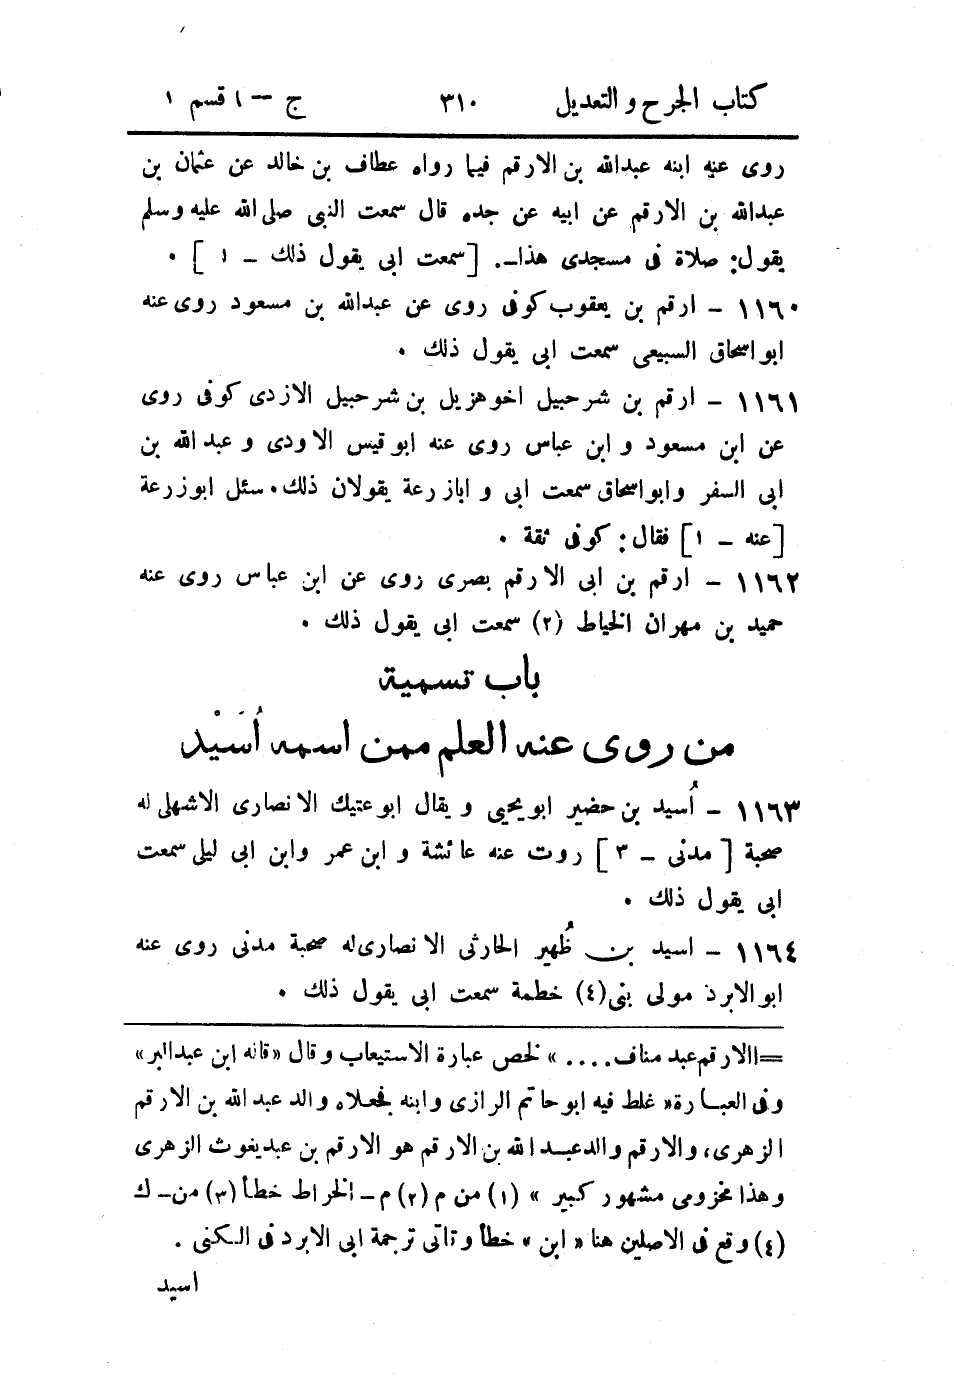 كتاب الجرح والتعديل ٣١٠ ج – ١ قسم ١
روى عنه ابنه عبدالله بن الارقم فيما رواه عطاف بن خالد عن عثمان بن
عبدالله بن الارقم عن ابيه عن جده قال سمعت النبى صلى الله عليه وسلم
يقول: صلاة فى مسجدى هذا... [سمعت ابى يقول ذلك - ١] .
١١٦٠ - ارقم بن يعقوب كوفى روى عن عبدالله بن مسعود روى عنه
ابواسحاق السبيعى سمعت ابى يقول ذلك .
١١٦١ - ارقم بن شرحبيل اخو هزيل بن شرحبيل الازدى كوفى روى
عن ابن مسعود و ابن عباس روى عنه ابو قيس الاودى و عبد الله بن
ابى السفر وابواسحاق سمعت ابى و ابازرعة يقولان ذلك . سئل ابوزرعة
[عنه - ١] فقال: كوفى ثقة .
١١٦٢ - ارقم بن ابى الارقم بصرى روى عن ابن عباس روى عنه
حميد بن مهران الخياط (٢) سمعت ابى يقول ذلك .
باب تسمية
من روى عنه العلم ممن اسمه اُسَيْد
١١٦٣ - اُسيد بن حضير ابويحيى و يقال ابوعتيك الانصارى الاشهلى له
صحبة [مدنى - ٣] روت عنه عائشة و ابن عمر وابن ابى ليلى سمعت
ابى يقول ذلك .
١١٦٤ - اسيد بن ظُهير الحارثى الانصارى له صحبة مدنى روى عنه
ابوالابرد مولى بنى (٤) خطمة سمعت ابى يقول ذلك .
=االارقم عبد مناف.... » لخص عبارة الاستيعاب وقال «قاله ابن عبدالبر»
وفى العبارة « غلط فيه ابوحاتم الرازى وابنه فجعلاه والد عبدالله بن الارقم
الزهرى، والارقم والد عبد الله بن الارقم هو الارقم بن عبديغوث الزهرى
وهذا مخزومى مشهور كبير » (١) من م (٢) م - الخراط خطأ (٣) من - ك
(٤) وقع فى الاصلين هنا « ابن » خطأ وتاتى ترجمة ابى الابرد فى الكنى .
اسيد